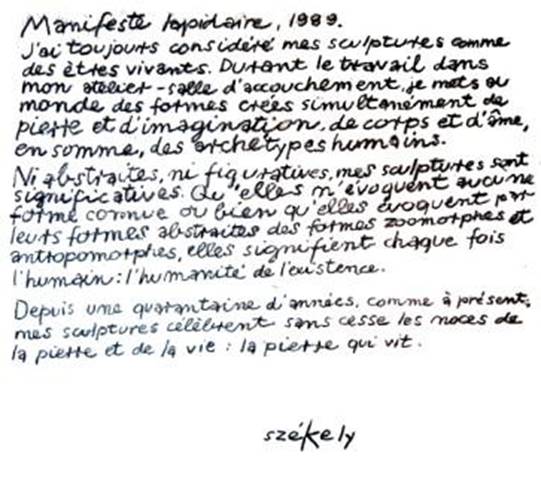 Manifeste lapidaire, 1989.
J'ai toujours considéré mes sculptures comme
des êtres vivants. Durant le travail dans
mon atelier-salle d'accouchement, je mets au
monde des formes crées simultanément de
pierre et d'imagination, de corps et d'âme,
en somme, des archetypes humains.
Ni abstraites, ni figuratives, mes sculptures sont
significatives. Qu'elles n'évoquent aucune
forme connue ou bien qu'elles évoquent par
leurs formes abstraites des formes zoomorphes et
antropomorphes, elles signifient chaque fois
l'humain: l'humanité de l'existence.
Depuis une quarantaine d'années, comme à présent,
mes sculptures célèbrent sans cesse les noces de
la pierre et de la vie : la pierre qui vit.
székely